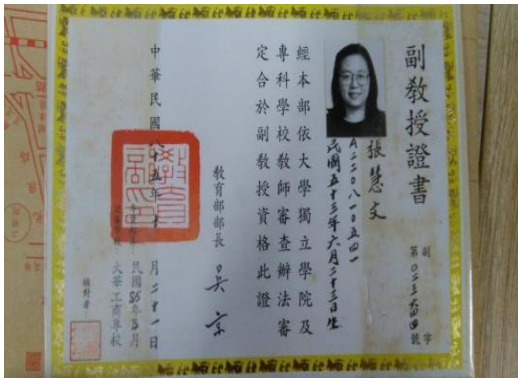 副教授證書
副字
第〇二五六四四號
張慧文
A二二〇八一〇五四一
民國五十三年六月二十三日生
經本部依大學獨立學院及
專科學校教師審查辦法審
定合於副教授資格此證
教育部部長 吳京
中華民國八十五年十月二十一日
民國85年8月
大華工商專校
核對者：